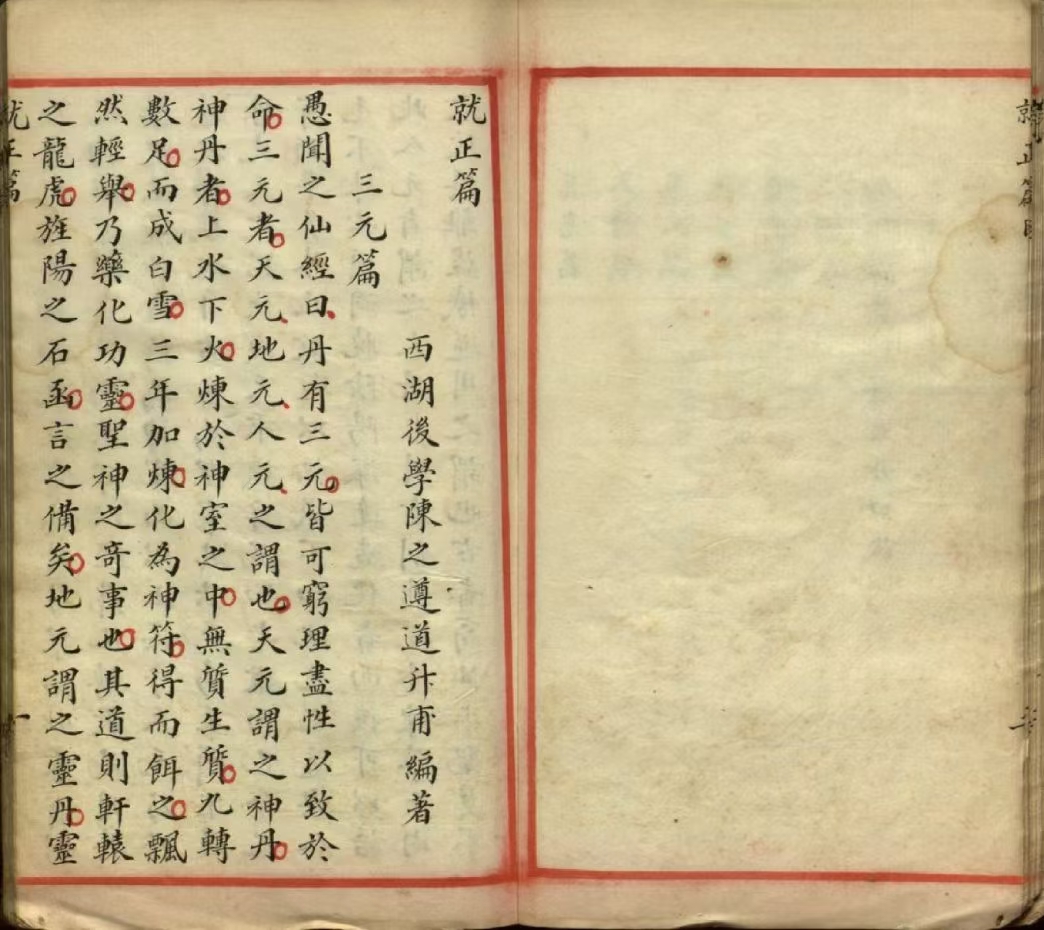 就正篇
就正篇
三元篇
西湖後學陳之遵道升甫編著
愚聞之仙經曰、丹有三元。皆可窮理盡性以致於
命。三元者。天元、地元、人元、之謂也。天元謂之神丹。
神丹者。上水下火。煉於神室之中。無質生質。九轉
數足。而成白雪。三年加煉。化為神符。得而餌之。飄
然輕舉。乃藥化功靈。聖神之竒事也。其道則軒轅
之龍虎。旌陽之石函。言之備矣。地元謂之靈丹。靈
就正篇